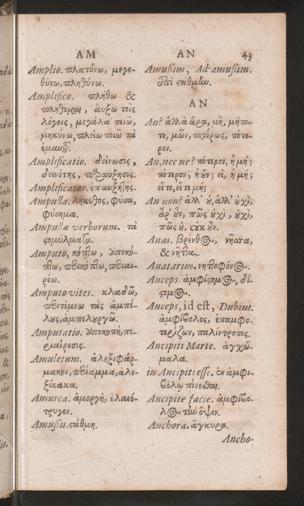 AM
Amplio. πλατύνω, μεγε-
θύνω, πληθύνω.
Amplifico. πλήθω &
πληθύομαι, αὔξω τοῖς
λόγοις, μεγάλα ποιῶ,
μηκύνω, πλείω ποιῶ τὰ
ἐμαυτῷ.
Amplificatio. δείνωσις,
δεινότης,
Amplificator. ἐπαυξητής.
Ampulla. λήκυθος, φύσα,
φύσημα.
Ampullæ verborum. τὰ
στωμύλματα.
Amputo, κόπτω,
Amputo vites. κλαδῶ,
περιτέμνω τὰς ἀμπέ-
λους, ἀμπελουργῶ.
Amputatio. ἀποκοπὴ, πε-
ριαίρεσις.
Amuletum. ἀλεξιφάρ-
μακον, περίαμμα, ἀλε-
ξίκακα.
Amurca. ἀμοργὴ, ἐλαιό-
τρυγον.
Amussis. στάθμη.
AN 43
Amussim, Ad amussim.
ἐπὶ στάθμῳ.
AN
An? ἀλλὰ ἄρα, μὴ, μήπο-
τε, μῶν, ποτέρως, πότε-
ρον.
An, nec ne? πότερον, ἢ μή;
πότερον, ἢ οὔ; εἰ, ἢ μή;
εἴτε, εἴτε μή;
An non? ἀλλ' οὐ, ἀλλ' οὐχὶ,
ἆρ' οὖν, πῶς οὐχὶ, οὐχὶ,
πῶς οὐ, οὐκοῦν.
Anas. βρένθος, νῆσσα,
& νῆττα.
Anatarius. νηττοφόνος.
Anceps ἀμφίστομος, δί-
στομος.
Anceps, id est, Dubius.
ἀμφίβολος, ἐπαμφο-
τερίζων, παλίντροπος.
Ancipiti Marte. ἀγχώ-
μαλα.
in Ancipiti esse. ἐν ἀμφι-
βόλῳ
Ancipite facie. ἀμφίβο-
λος τὴν ὄψιν.
Anchora. ἄγκυρα.
Ancho-